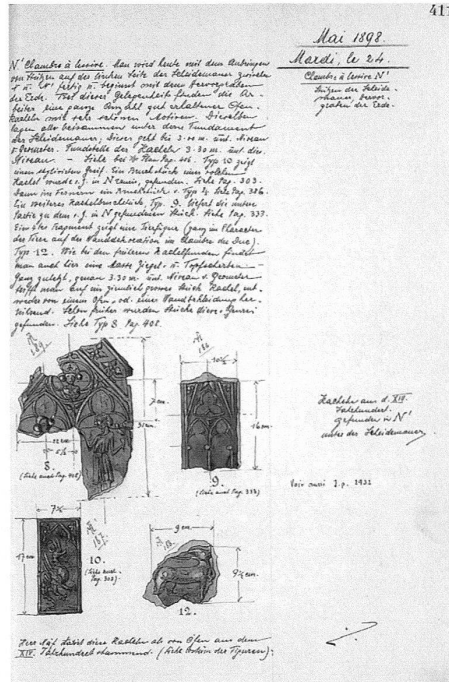 411
Mai 1898.
Mardi, le 24.
Chambre à lessive N'
Stützen der Scheide-
mauer, hervor-
graben der Erde.
N' Chambre à lessive. Man wird heute mit dem Anbringen
von Stützen auf der linken Seite der Scheidemauer zwischen
fertig u. beginnt mit dem hervorgraben
der Erde. Bei dieser Gelegenheit finden die Ar-
beiter eine ganze Anzahl gut erhaltener Ofen-
kacheln mit sehr schönen Motiven. Dieselben
lagen alle beisammen unter dem Fundament
der Scheidemauer. Dieses geht bis 3.00 m. unt. Niveau
v. Geometer. Fundstelle der Kacheln 3.30 m. unt. dies.
Niveau — Siehe bei Plan Pag. 406. Typ 10 zeigt
einen stylisirten Greif. Ein Bruchstück einer solchen
Kachel wurde s. z. in N gefunden. Siehe Pag. 303.
Dann im ferneren ein Bruchstück v. Typ Siehe Pag. 386.
Ein weiteres Kachelbruchstück, Typ. 9. liefert die untere
Partie zu dem s. z. in N gefundenen Stück. Siehe Pag. 337.
Ein Fragment zeigt eine Tierfigur (ganz im Character
der Tiere auf der Wanddekoration im Chambre du Duc).
Typ 12. Wie bei den früheren Kachelfunden findet
man auch hier eine Masse Ziegel- u. Topfscherben —
Ganz zuletzt, genau 3.30 m. unt. Niveau v. Geometer
trifft man auf ein ziemlich grosses Stück Kachel, ent-
weder von einem Ofen, od. einer Wandbekleidung her-
rührend. Schon früher wurden Stücke dieses Genre
gefunden. Siehe Typ 8 Pag. 408.
12 cm
5½
8.
(Siehe auch Pag. 408)
7 cm
31 cm
10½
16 cm
9.
(Siehe auch Pag. 337)
Kacheln aus d. XIV.
Jahrhundert.
gefunden in N'
unter der Scheidemauer
Voir aussi J. p. 1932
7½
17 cm
10.
(Siehe auch
Pag. 303)
9 cm
9½ cm.
12.
Herr Näf datirt diese Kacheln als von Öfen aus dem
XIV. Jahrhundert stammend. (Siehe Costüm der Figuren).